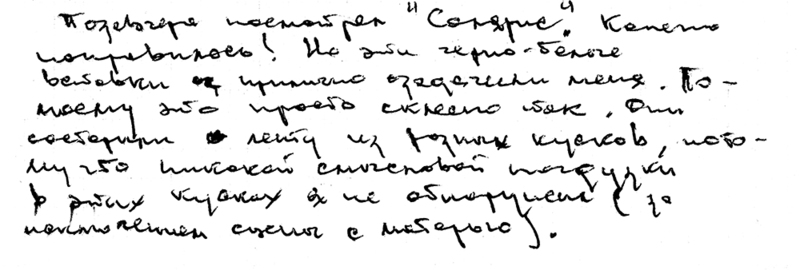 Позавчера посмотрел "Солярис". Конечно
понравилось! Но эти черно-белые
вставки прилично озадачили меня. По-
моему это просто склеено так. Они
составили ленту из разных кусков, пото-
му что никакой смысловой нагрузки
в этих кусках я не обнаружил (за
исключением сцены с матерью).